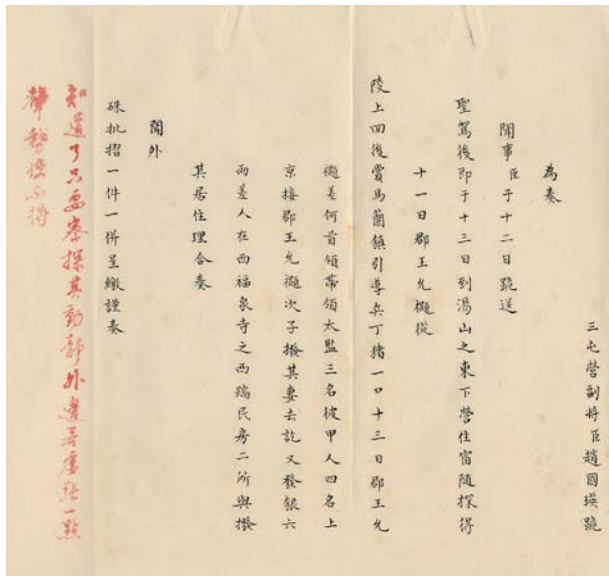 三屯營副將臣趙國瑛跪
為奏
聞事臣于十二日跪送
聖駕後即于十三日到湯山之東下營住宿隨探得
十一日郡王允禵從
陵上回後賞馬蘭鎮引導兵丁豬一口十三日郡王允
禵差何首領帶領太監三名披甲人四名上
京接郡王允禵次子撥其妻去訖又發銀六
兩差人在西福泉寺之西瑞民房二所與撥
其居住理合奏
聞外
硃批摺一件一併呈繳謹奏
知道了只要密探其動靜外邊若露張一點
聲勢使不得